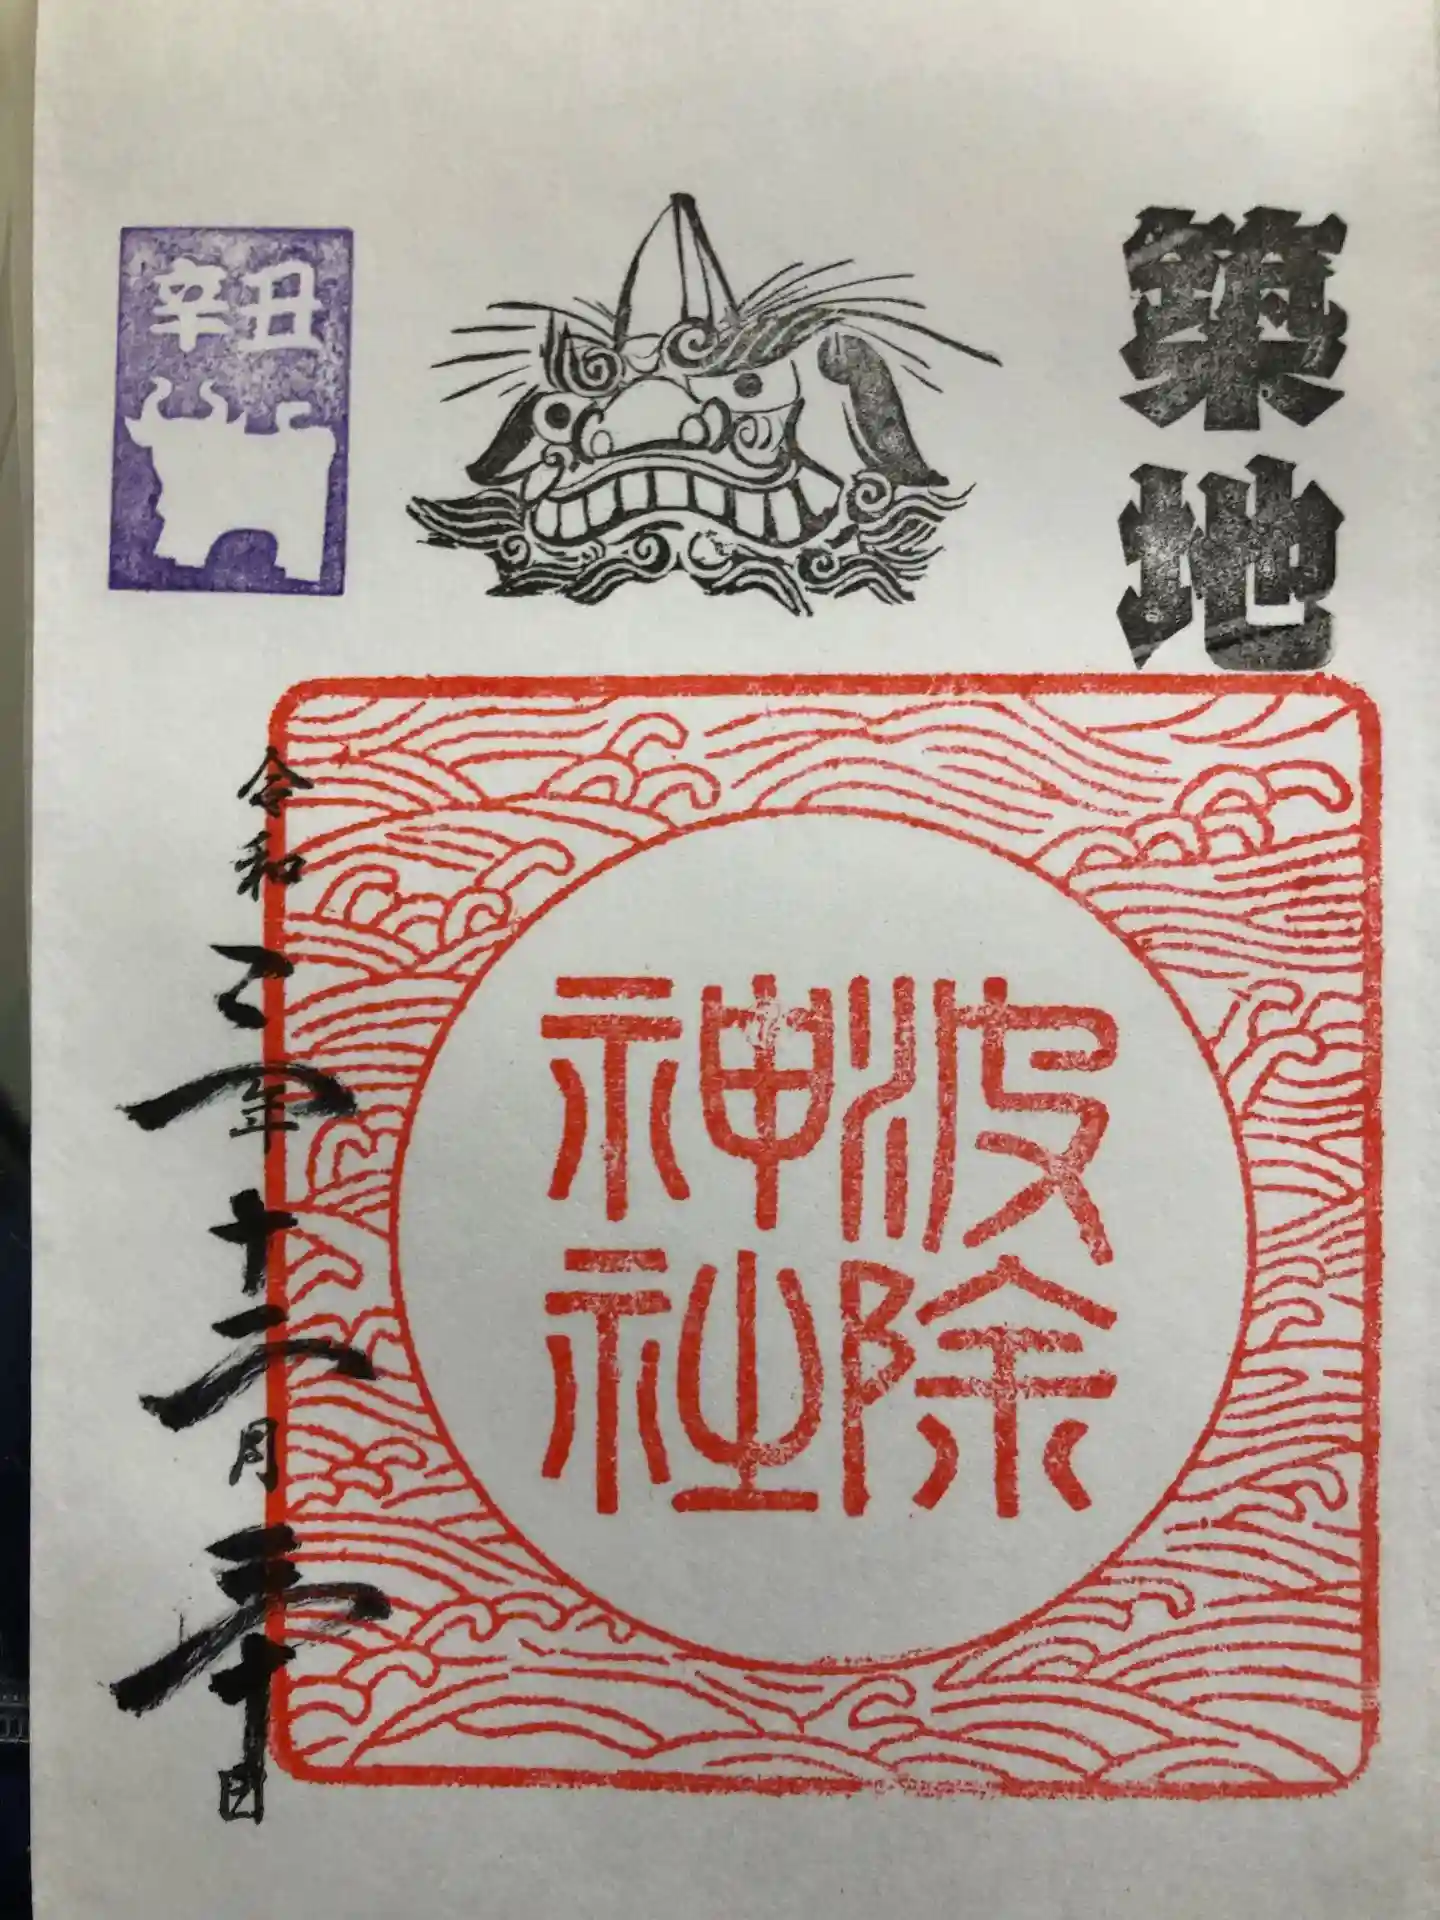 築地
波除
神社
辛丑
令和三年十二月三十日